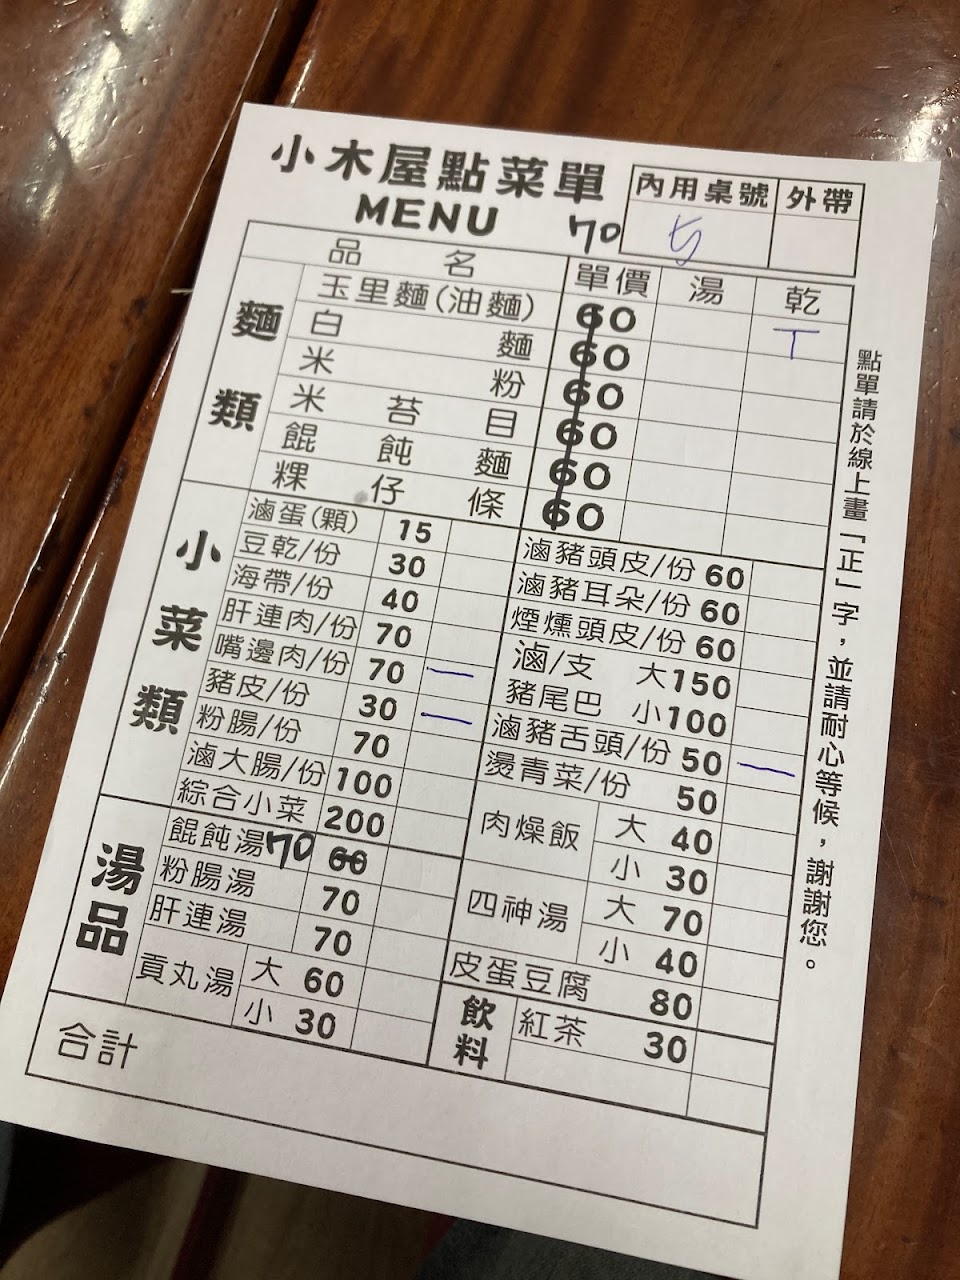 小木屋點菜單
MENU
內用桌號 外帶
5
70
品名 單價 湯 乾
麵類
玉里麵(油麵) 60 T
白麵 60
米粉 60
米苔目 60
餛飩麵 60
粿仔條 60
小菜類
滷蛋(顆) 15
豆乾/份 30
海帶/份 40
肝連肉/份 70
嘴邊肉/份 70 一
豬皮/份 30 一
粉腸/份 70
滷大腸/份 100
綜合小菜 200
滷豬頭皮/份 60
滷豬耳朵/份 60
煙燻頭皮/份 60
滷/支 大150
豬尾巴 小100
滷豬舌頭/份 50 一
燙青菜/份 50
肉燥飯 大 40
小 30
四神湯 大 70
小 40
皮蛋豆腐 80
湯品
餛飩湯 70 60
粉腸湯 70
肝連湯 70
貢丸湯 大 60
小 30
飲料
紅茶 30
合計
點單請於線上畫「正」字，並請耐心等候，謝謝您。